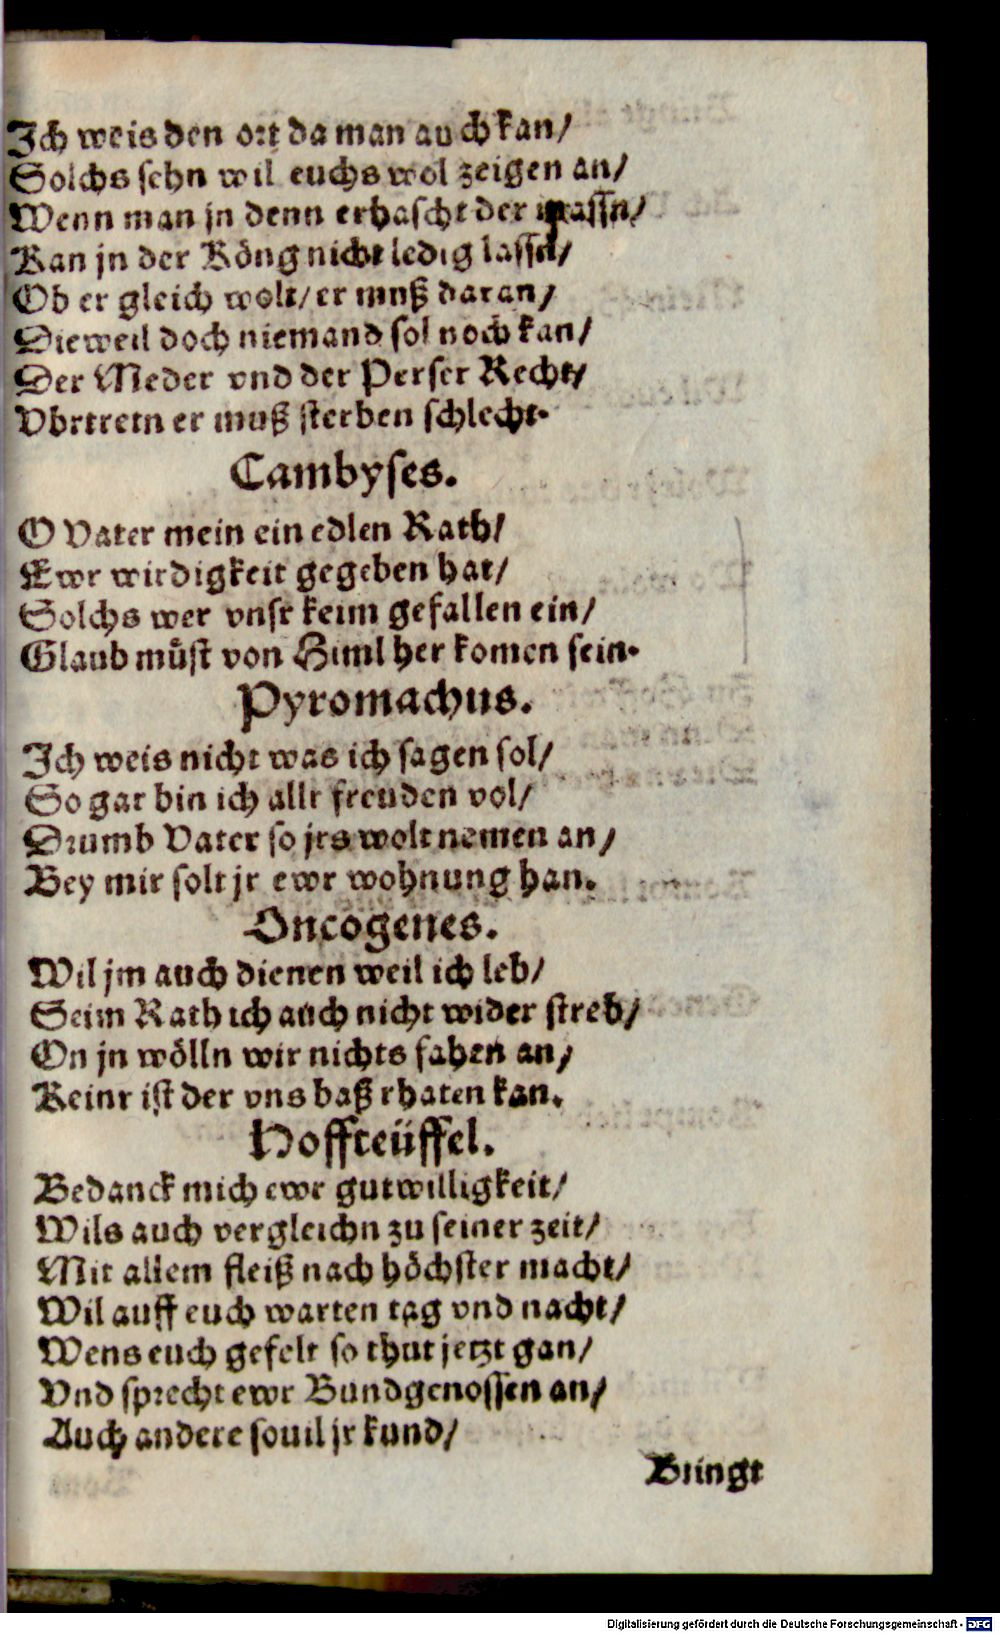 Ich weis den ort da man auch kan/
Solchs sehn wil euchs wol zeigen an/
Wenn man jn denn erhascht der massn/
Kan jn der Köng nicht ledig lassn/
Ob er gleich wolt/ er muß daran/
Dieweil doch niemand sol noch kan/
Der Meder vnd der Perser Recht/
Vbrtretn er muß sterben schlecht.
Cambyses.
O Vater mein ein edlen Rath/
Ewr wirdigkeit gegeben hat/
Solchs wer vnsr keim gefallen ein/
Glaub müst von Himl her komen sein.
Pyromachus.
Ich weis nicht was ich sagen sol/
So gar bin ich allr freuden vol/
Drumb Vater so jrs wolt nemen an/
Bey mir solt jr ewr wohnung han.
Oncogenes.
Wil jm auch dienen weil ich leb/
Seim Rath ich auch nicht wider streb/
On jn wölln wir nichts fahen an/
Keinr ist der vns baß rhaten kan.
Hoffteüffel.
Bedanck mich ewr gutwilligkeit/
Wils auch vergleichn zu seiner zeit/
Mit allem fleiß nach höchster macht/
Wil auff euch warten tag vnd nacht/
Wens euch gefelt so thut jetzt gan/
Vnd sprecht ewr Bundgenossen an/
Auch andere souil jr kund/
Bringt
Digitalisierung gefördert durch die Deutsche Forschungsgemeinschaft - DFG